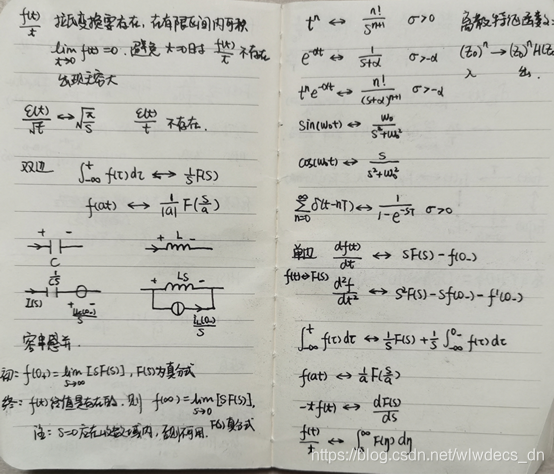 f(t)/t 拉氏变换要存在,在有限区间内可积
lim t→0 f(t)=0. 避免 t=0时 f(t)/t 不存在
出现无穷大
ε(t)/√t ↔ √(π/s) ε(t)/t 不存在.
双边 ∫_{-∞}^{t} f(τ)dτ ↔ 1/s F(s)
f(at) ↔ 1/|a| F(s/a)
+ - + L -
C
1/cs Ls
I(s) + -
容串感并.
初: f(0+)=lim s→∞ [sF(s)], F(s)为真分式
终: f(t)终值是存在的, 则 f(∞)=lim s→0 [sF(s)],
注: s=0应在收敛域内, 否则不可用. F(s)真分式
t^n ↔ n!/s^{n+1} σ>0
e^{-αt} ↔ 1/(s+α) σ>-α
t^n e^{-αt} ↔ n!/(s+α)^{n+1} σ>-α
sin(ω₀t) ↔ ω₀/(s²+ω₀²)
cos(ω₀t) ↔ s/(s²+ω₀²)
∑_{n=0}^{∞} δ(t-nT) ↔ 1/(1-e^{-sT}) σ>0
单边 df(t)/dt ↔ sF(s)-f(0-)
f(t)↔F(s) d²f/dt² ↔ s²F(s)-sf(0-)-f'(0-)
∫_{-∞}^{t} f(τ)dτ ↔ 1/s F(s)+1/s ∫_{-∞}^{0-} f(τ)dτ
f(at) ↔ 1/a F(s/a)
-tf(t) ↔ dF(s)/ds
f(t)/t ↔ ∫_{s}^{∞} F(η)dη
离散特征函数:
(z₀)^n → (z₀)^n H(z₀
入 出
https://blog.csdn.net/wlwdecs_dn